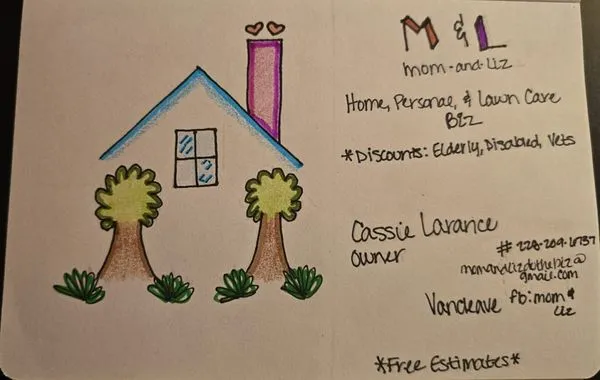 M & L
mom-and-Liz
Home, Personal, & Lawn Care
Biz
*Discounts: Elderly, Disabled, Vets
Cassie Larance
Owner
# 228-209-6737
momandlizdothebiz@
gmail.com
Vancleave fb: mom &
Liz
*Free Estimates*